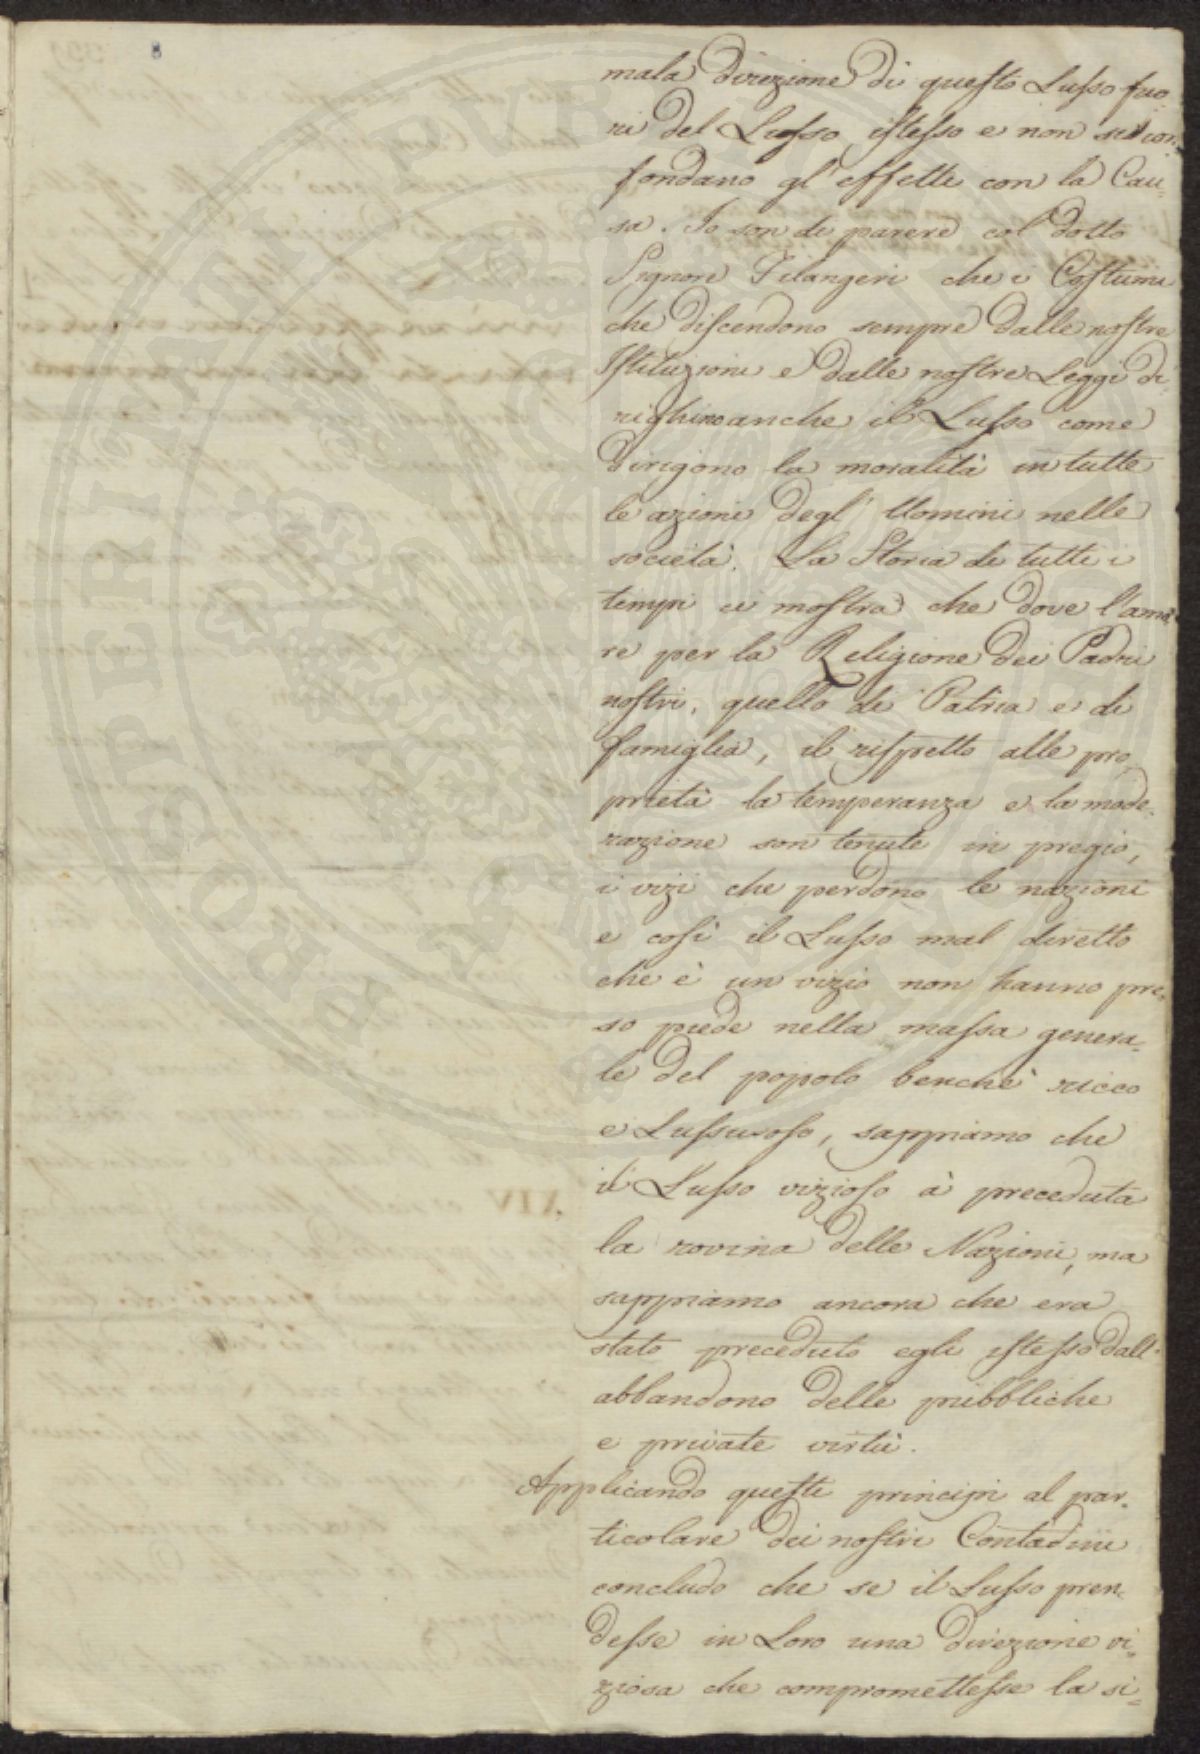 mala direzione di questo Lusso fuo
ri del Lusso istesso e non si con-
fondano gl'effetti con la Cau-
sa. Io son di parere col dotto
Signore Filangeri che i Costumi
che discendono sempre dalle nostre
Istituzioni e dalle nostre Leggi di-
righino anche il Lusso come
dirigono la moralità in tutte
le azioni degl'Uomini nelle
società. La Storia di tutti i
tempi ci mostra che dove l'amo
re per la Religione dei Padri
nostri, quello di Patria e di
famiglia, il rispetto alle pro
prietà la temperanza e la mode-
razione son tenute in pregio,
i vizi che perdono le nazioni
e così il Lusso mal diretto
che è un vizio non hanno pre-
so piede nella massa genera-
le del popolo benchè ricco
e Lussuroso, sappiamo che
il Lusso vizioso à preceduta
la rovina delle Nazioni, ma
sappiamo ancora che era
stato preceduto egli istesso dall'
abbandono delle pubbliche
e private virtù.
Applicando questi principi al par-
ticolare dei nostri Contadini
concludo che se il Lusso pren-
desse in Loro una direzione vi-
ziosa che compromettesse la si-
PROSPERITATI PUBLICAE AUGENDAE
XIV